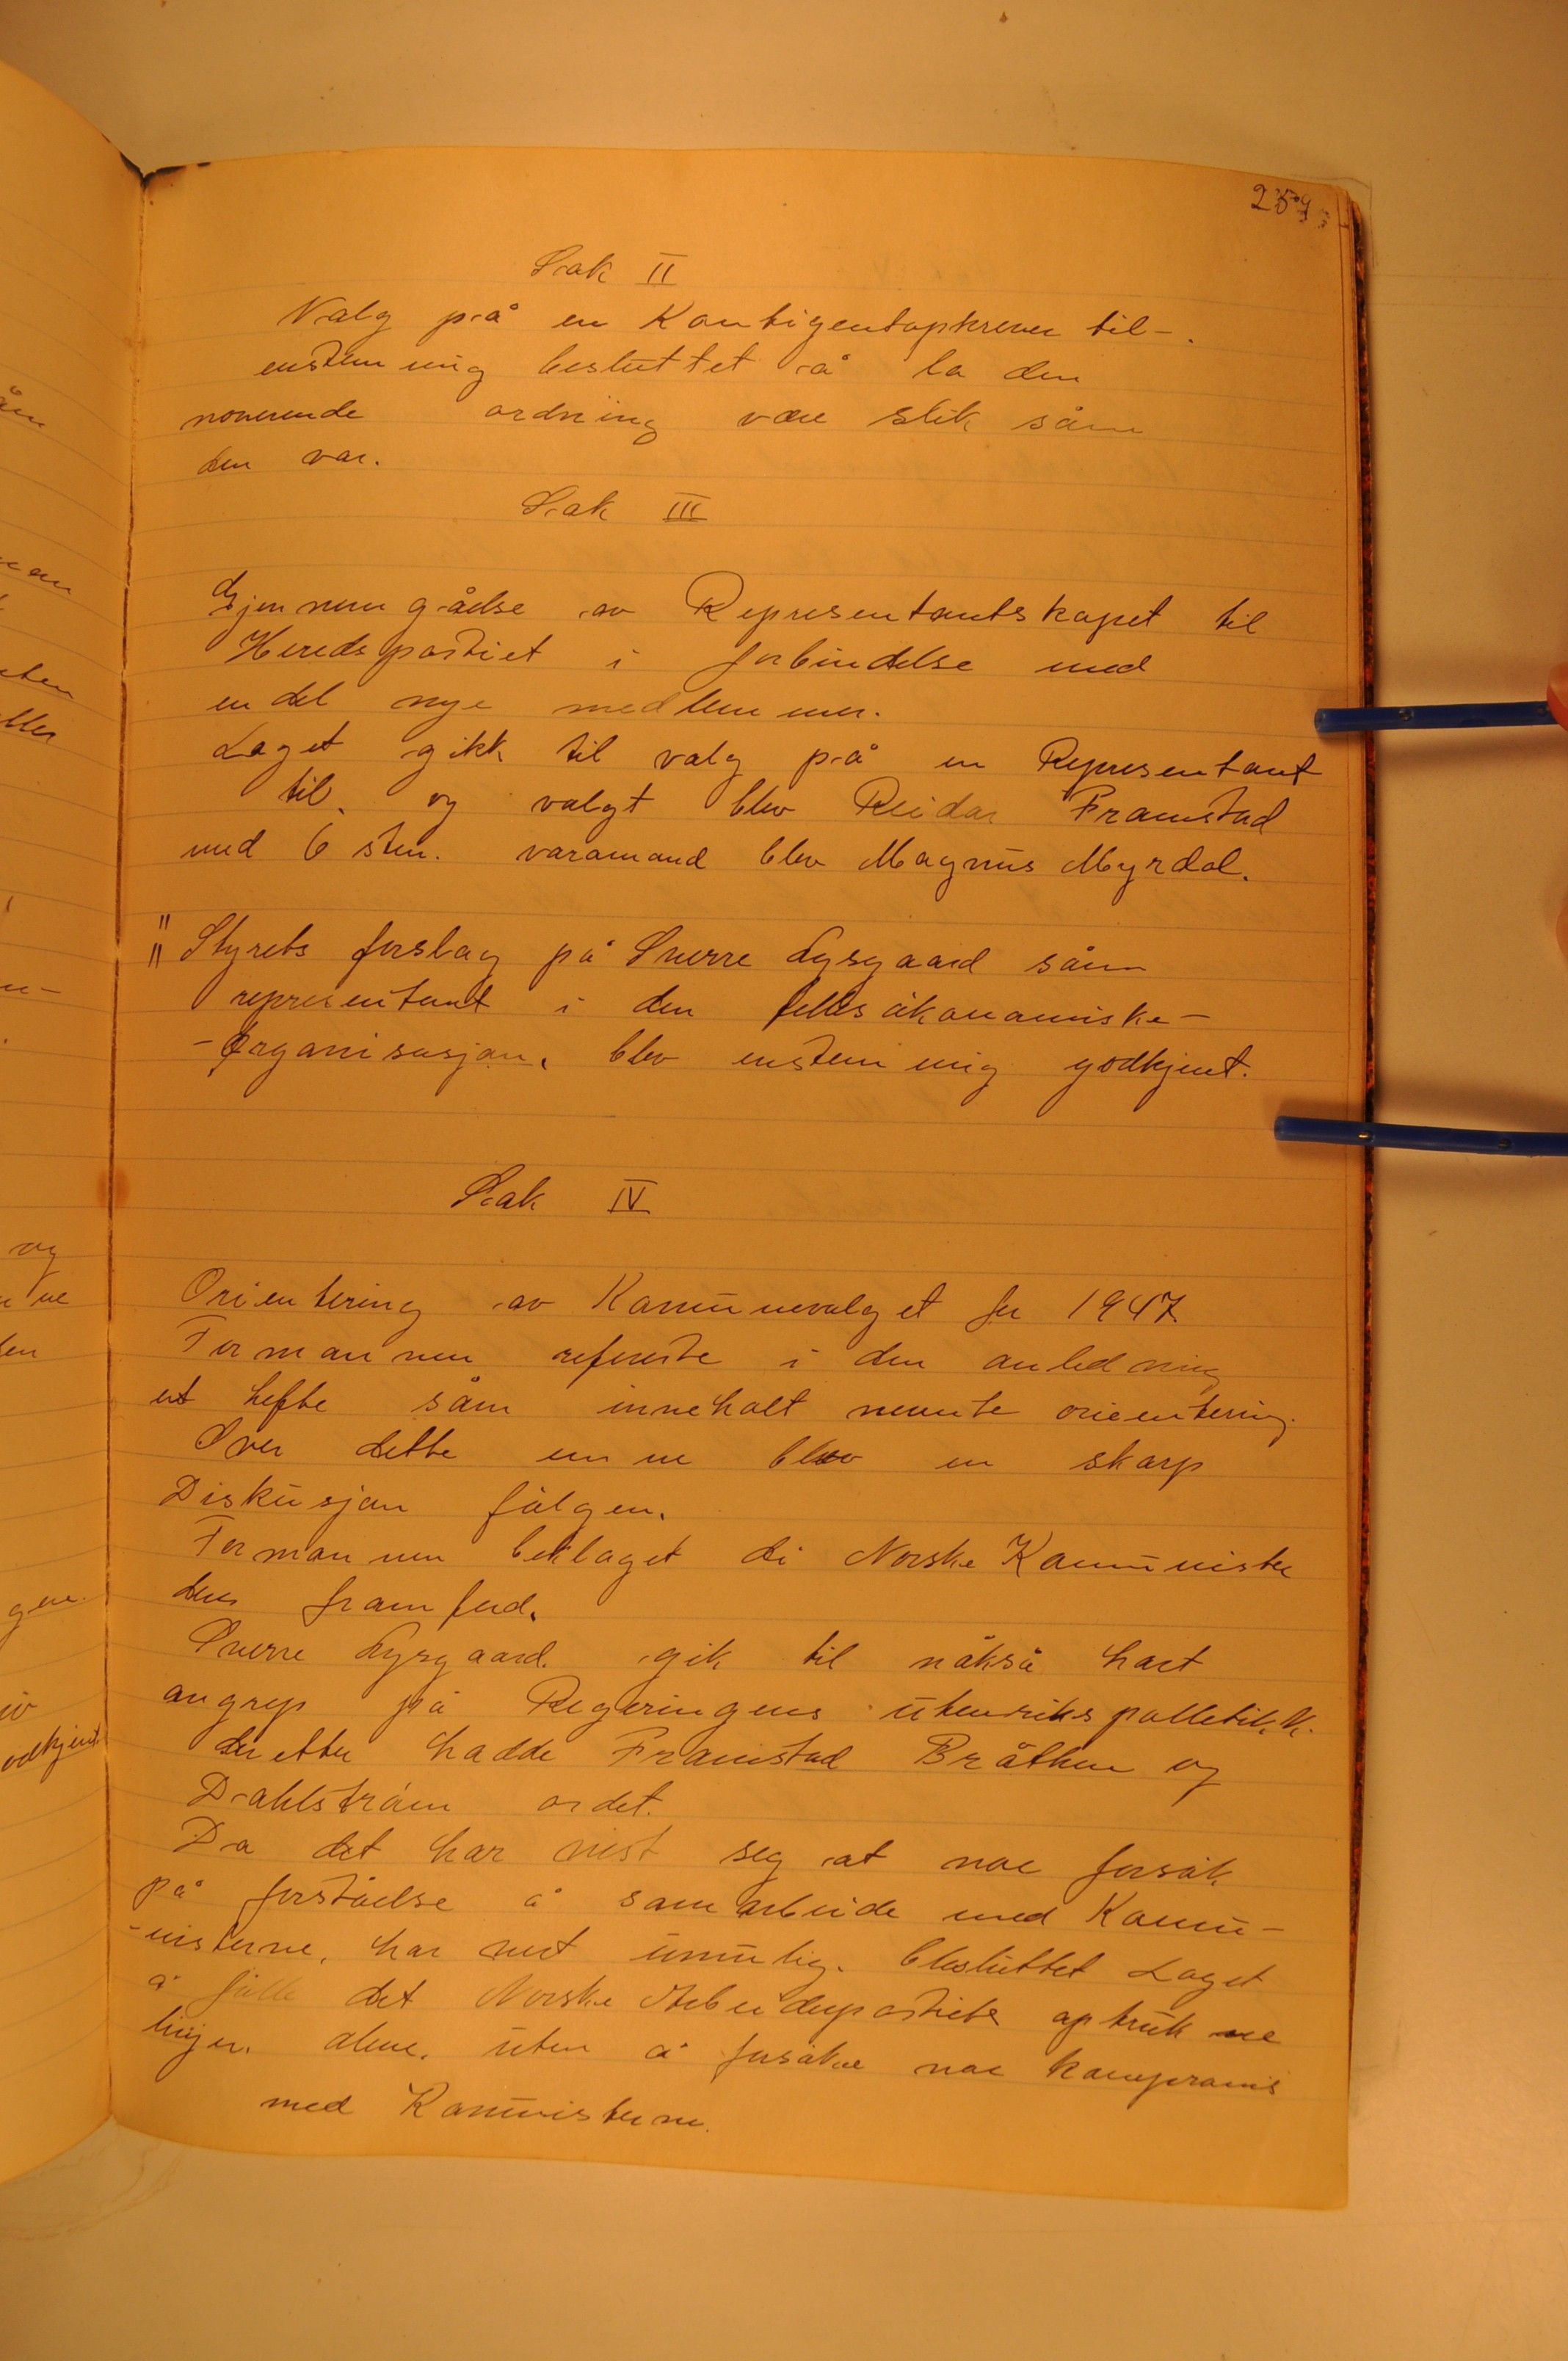 259
Sak II
Valg på en Kontigentopkrever til-.
enstemmig besluttet å la den
noverende ordning være slik såm
den var.
Sak III
Gjennem gåelse av Representantskapet til
Heredspartiet i forbindelse med
en del nye medlemmer.
Laget gikk til valg på en Representant
til. og valgt blev Reidar Framstad
med 6 stem. varamand blev Magnus Myrdal.
Styrets forslag på Sverre Lysgaard såm
representant i den felles åkonomiske-
-Organisasjon. blev enstemmig godkjent.
Sak IV
Orientering av Kommunevalget for 1947.
Formannen refererte i den anledning
et hefte såm inneholt nevnte orientering.
Over dette emne blev en skarp
Diskusjon fålgen.
Formannen beklaget di Norske Kommunister
deres framferd.
Sverre Lysgaard. gik til nåkså hart
angrep på Regeringens utenrikspolletikk.
deretter hadde Framstad Bråthen og
Dahlstråm ordet.
Da det har vist seg at noe forsåk
på forståelse å samarbeide med Kommu-
-nisterne. har vert umulig. besluttet Laget
å fålle det Norske Arbeiderpartiets optrukne
linjer. alene. uten å forsåke noe kompromis
med Kommunisterne.
og
gen.
odkjent.